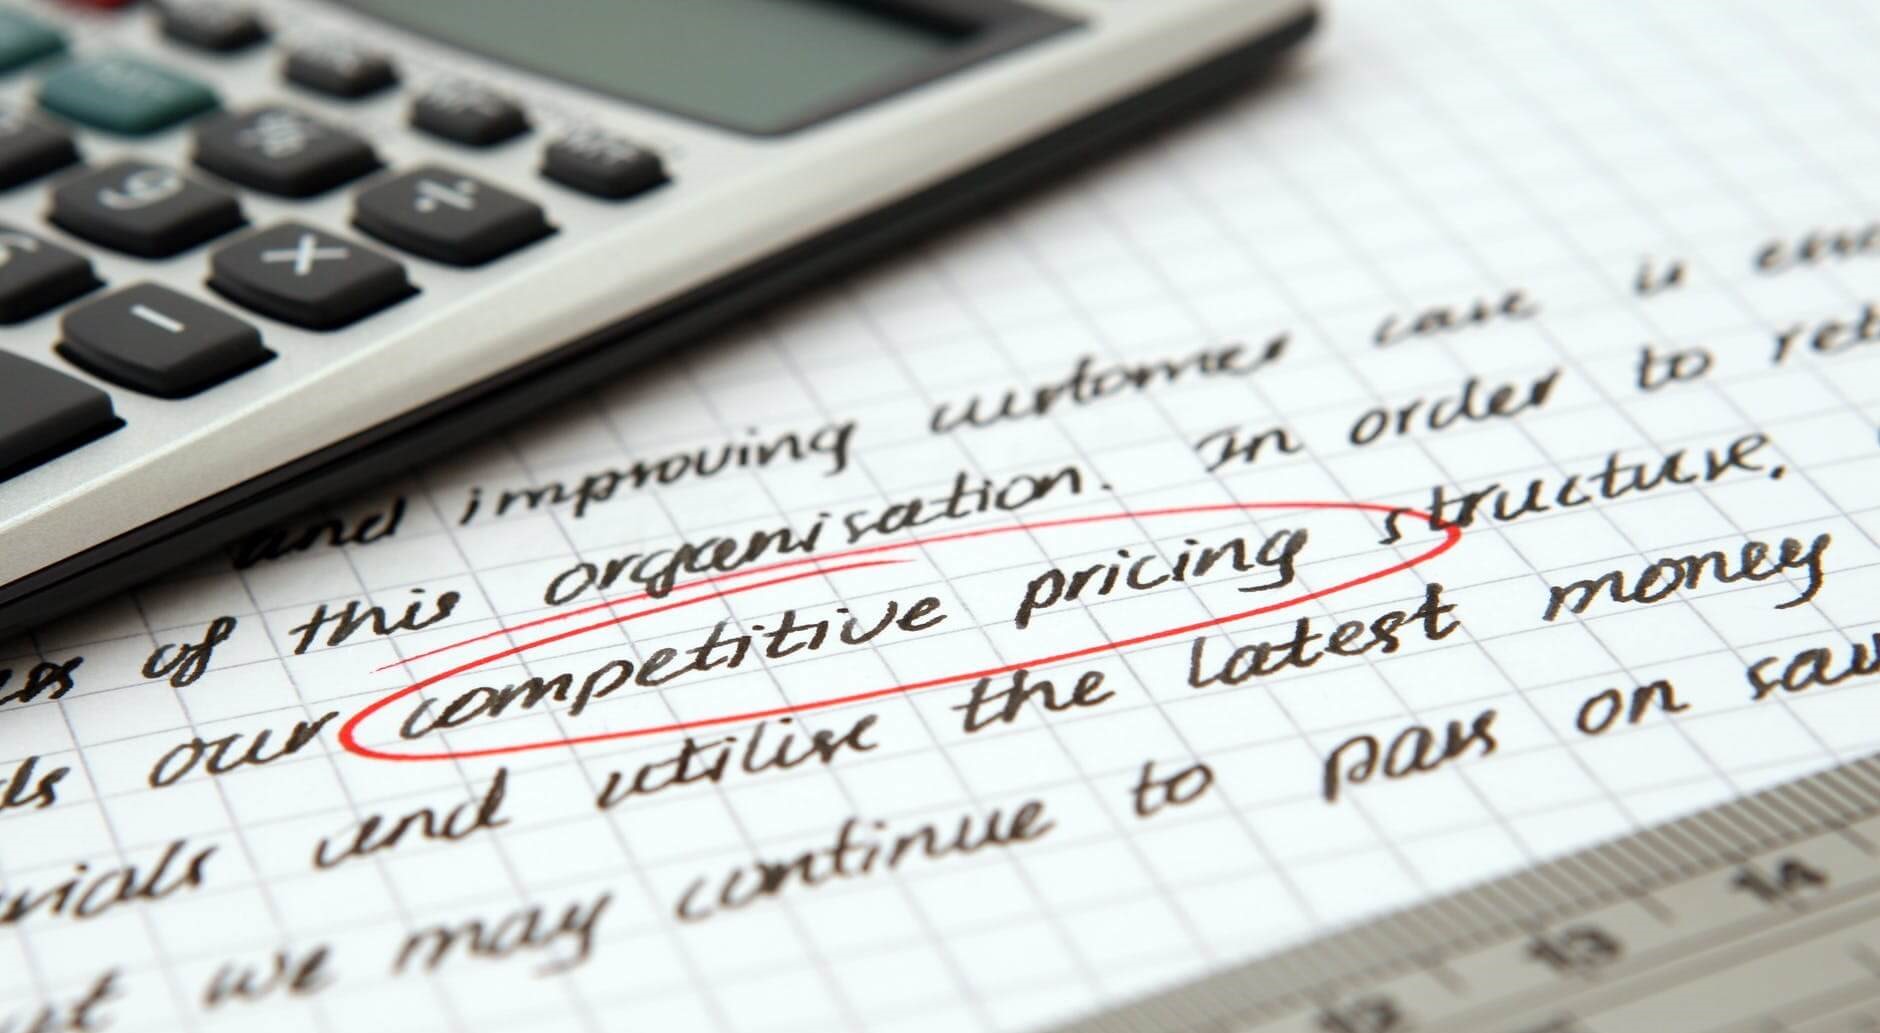 %
9
÷
×
−
and improving customer care is
of this organisation. In order to
our competitive pricing structure.
and utilise the latest money
we may continue to pass on
14
13
12